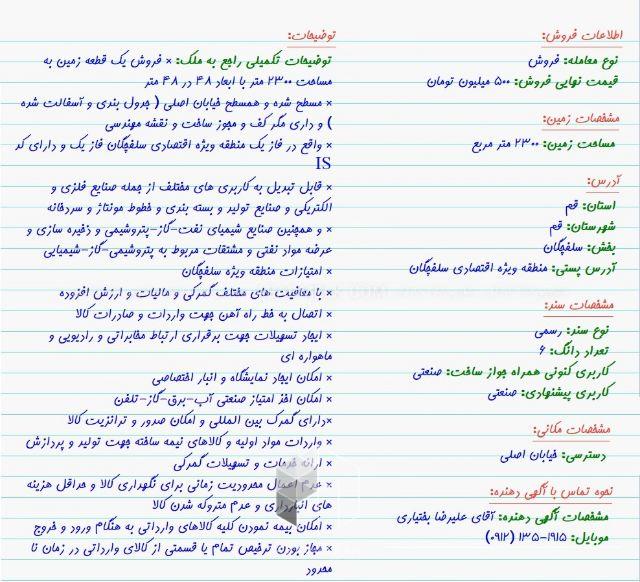 اطلاعات فروش:
نوع معامله: فروش
قیمت نهایی فروش: ۵۰۰ میلیون تومان
مشخصات زمین:
مساحت زمین: ۲۳۰۰ متر مربع
آدرس:
استان: قم
شهرستان: قم
بخش: سلفچگان
آدرس پستی: منطقه ویژه اقتصادی سلفچگان
مشخصات سند:
نوع سند: رسمی
تعداد دانگ: ۶
کاربری کنونی همراه جواز ساخت: صنعتی
کاربری پیشنهادی: صنعتی
مشخصات مکانی:
دسترسی: خیابان اصلی
نحوه تماس با آگهی دهنده:
مشخصات آگهی دهنده: آقای علیرضا بختیاری
موبایل: ۱۹۱۵-۱۳۵ (۰۹۱۲)
توضیحات:
توضیحات تکمیلی راجع به ملک: × فروش یک قطعه زمین به
مساحت ۲۳۰۰ متر با ابعاد ۴۸ در ۴۸ متر
× مسطح شده و همسطح خیابان اصلی ( جدول بندی و آسفالت شده
) و داری مگر کف و مجوز ساخت و نقشه مهندسی
× واقع در فاز یک منطقه ویژه اقتصادی سلفچگان فاز یک و دارای کد
IS
× قابل تبدیل به کاربری های مختلف از جمله صنایع فلزی و
الکتریکی و صنایع تولید و بسته بندی و خطوط مونتاژ و سردخانه
× و همچنین صنایع شیمیای نفت-گاز-پتروشیمی و ذخیره سازی و
عرضه مواد نفتی و مشتقات مربوط به پتروشیمی-گاز-شیمیایی
× امتیازات منطقه ویژه سلفچگان
× با معافیت های مختلف گمرکی و مالیات و ارزش افزوده
× اتصال به خط راه آهن جهت واردات و صادرات کالا
× ایجاد تسهیلات جهت برقراری ارتباط مخابراتی و رادیویی و
ماهواره ای
× امکان ایجاد نمایشگاه و انبار اختصاصی
× امکان اخذ امتیاز صنعتی آب-برق-گاز-تلفن
×دارای گمرک بین المللی و امکان صدور و ترانزیت کالا
× واردات مواد اولیه و کالاهای نیمه ساخته جهت تولید و پردازش
× ارائه خدمات و تسهیلات گمرکی
× عدم اعمال محدودیت زمانی برای نگهداری کالا و حداقل هزینه
های انبارداری و عدم متروکه شدن کالا
× امکان بیمه نمودن کلیه کالاهای وارداتی به هنگام ورود و خروج
× مجاز بودن ترخیص تمام یا قسمتی از کالای وارداتی در زمان نا
محدود